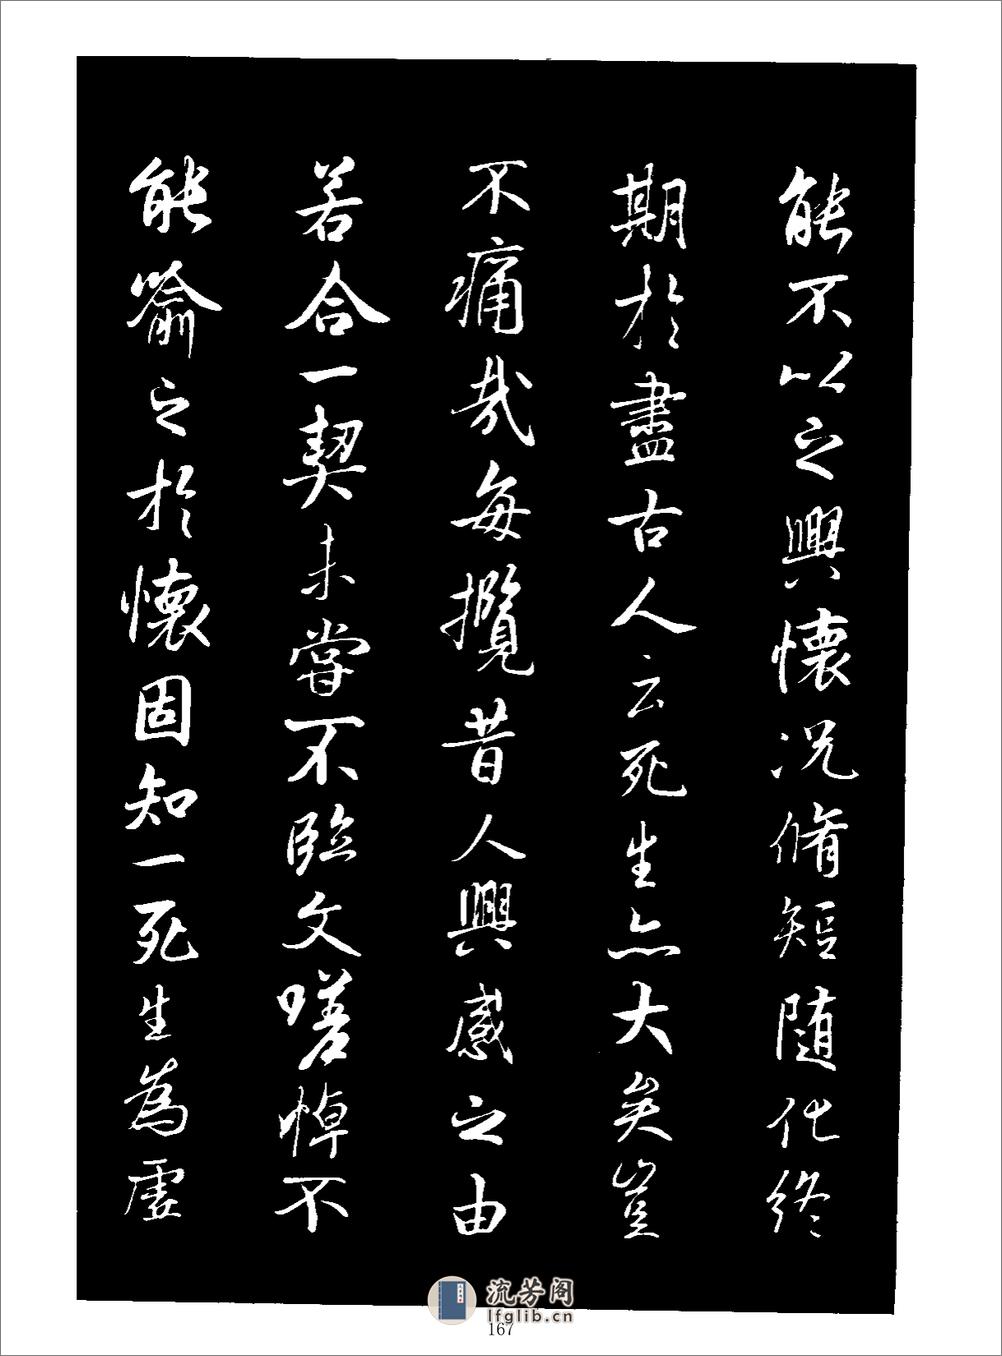 能不以之興懷况脩短随化終
期於盡古人云死生亦大矣豈
不痛哉每攬昔人興感之由
若合一契未嘗不臨文嗟悼不
能喻之於懷固知一死生為虛
流芳阁
lfglib.cn
167